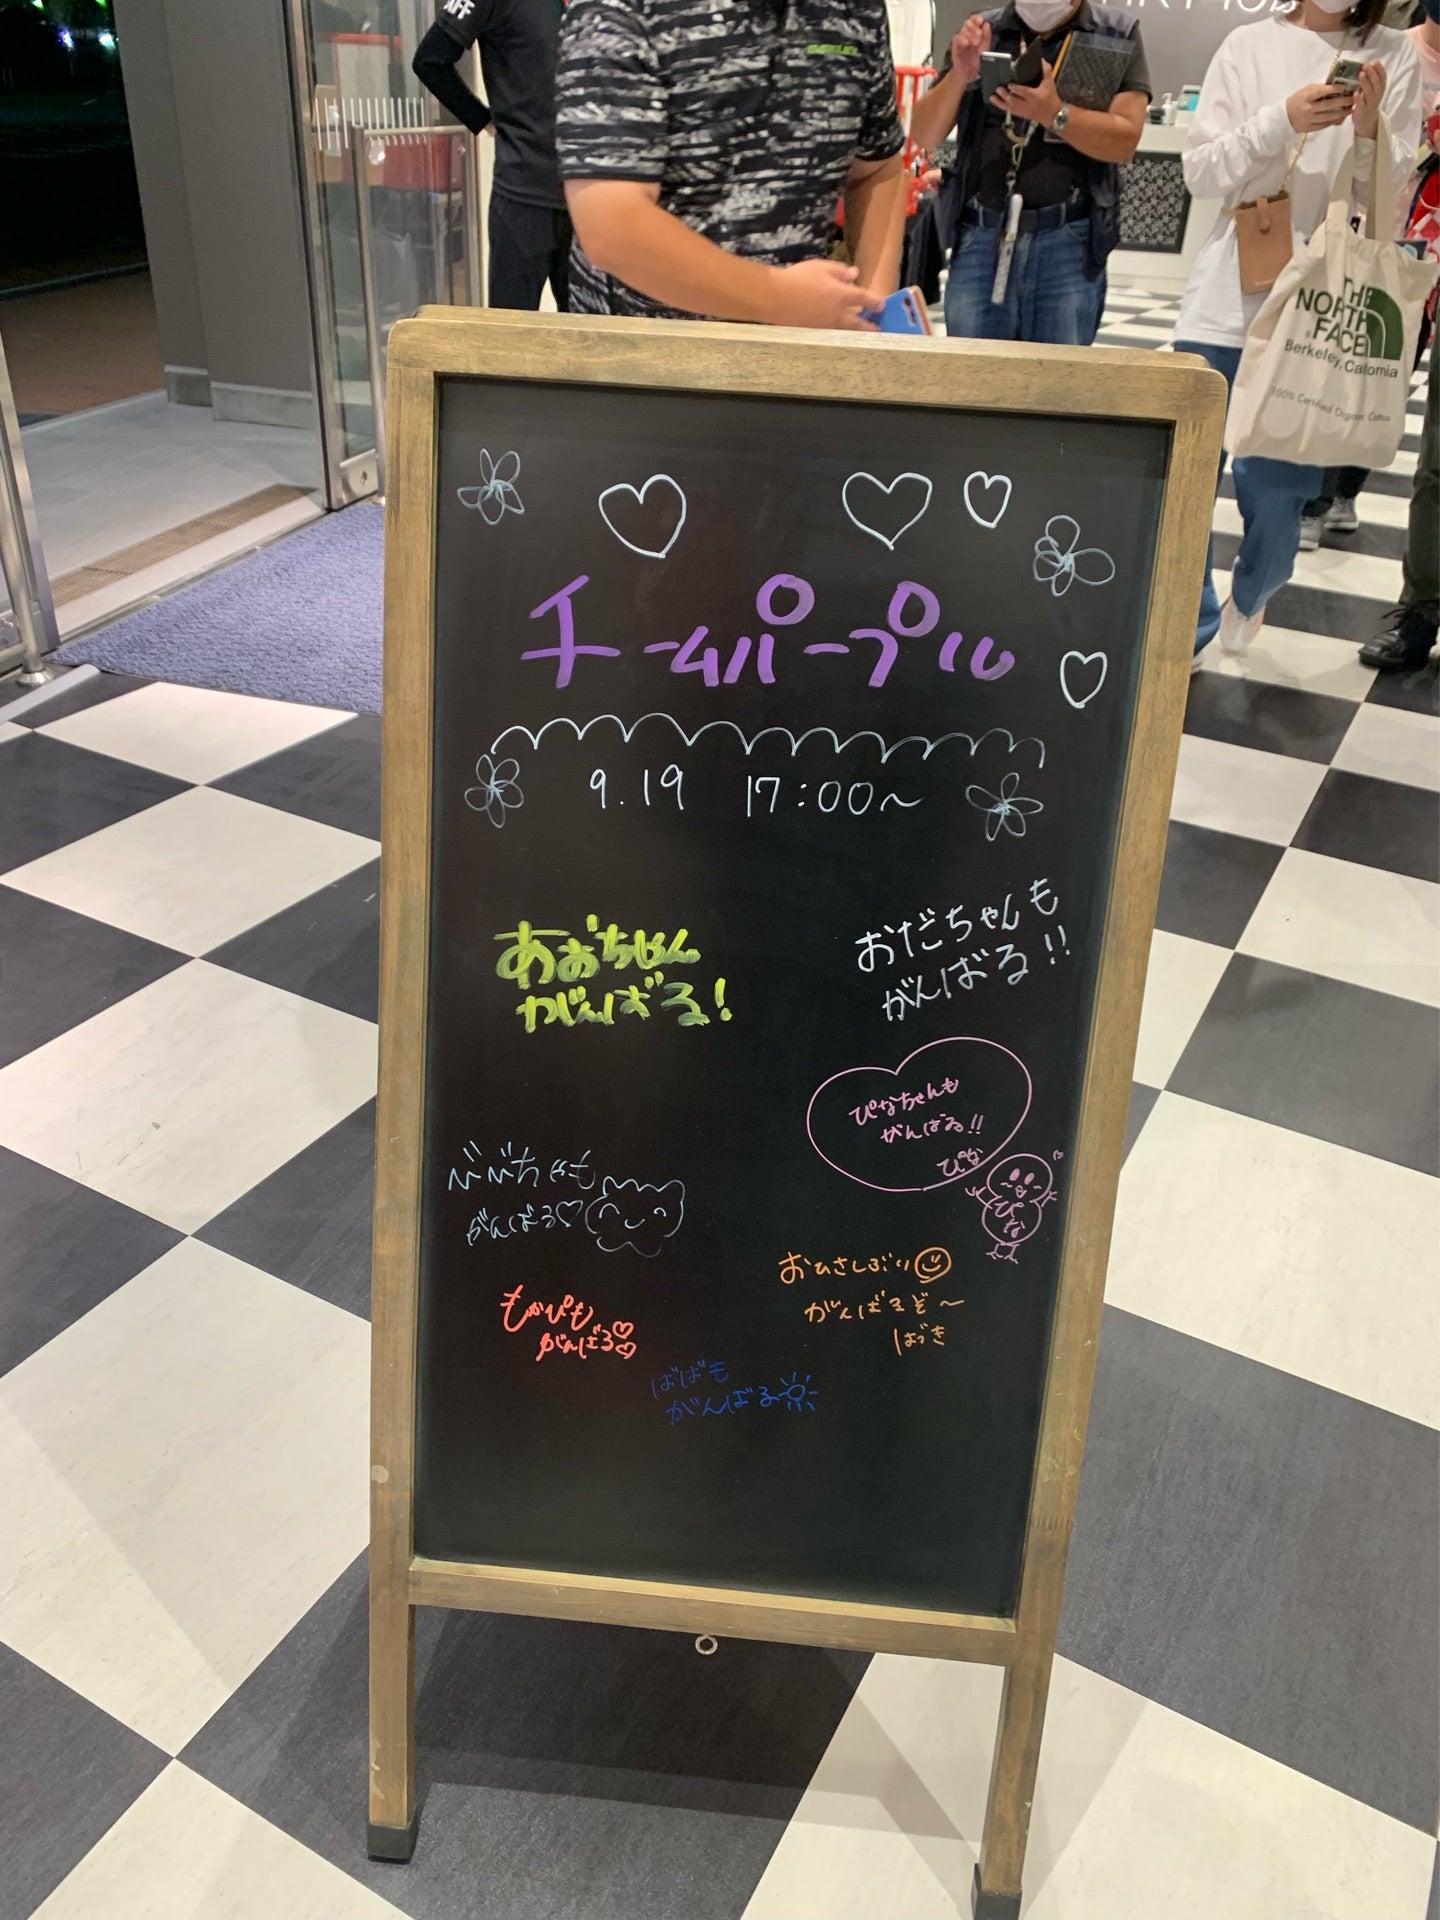 チームパープル
9.19 17:00~
あおちゃん
がんばる!
おだちゃんも
がんばる!!
ぴなちゃんも
がんばる!!
ぴな
ぴな
びびちゃも
がんばる♡
もかぴも
がんばる♡♡
おひさしぶり
がんばるぞ〜
はづき
ばばも
がんばる
THE
NORTH
FACE
Berkeley, California
100% Certified Organic Cotton